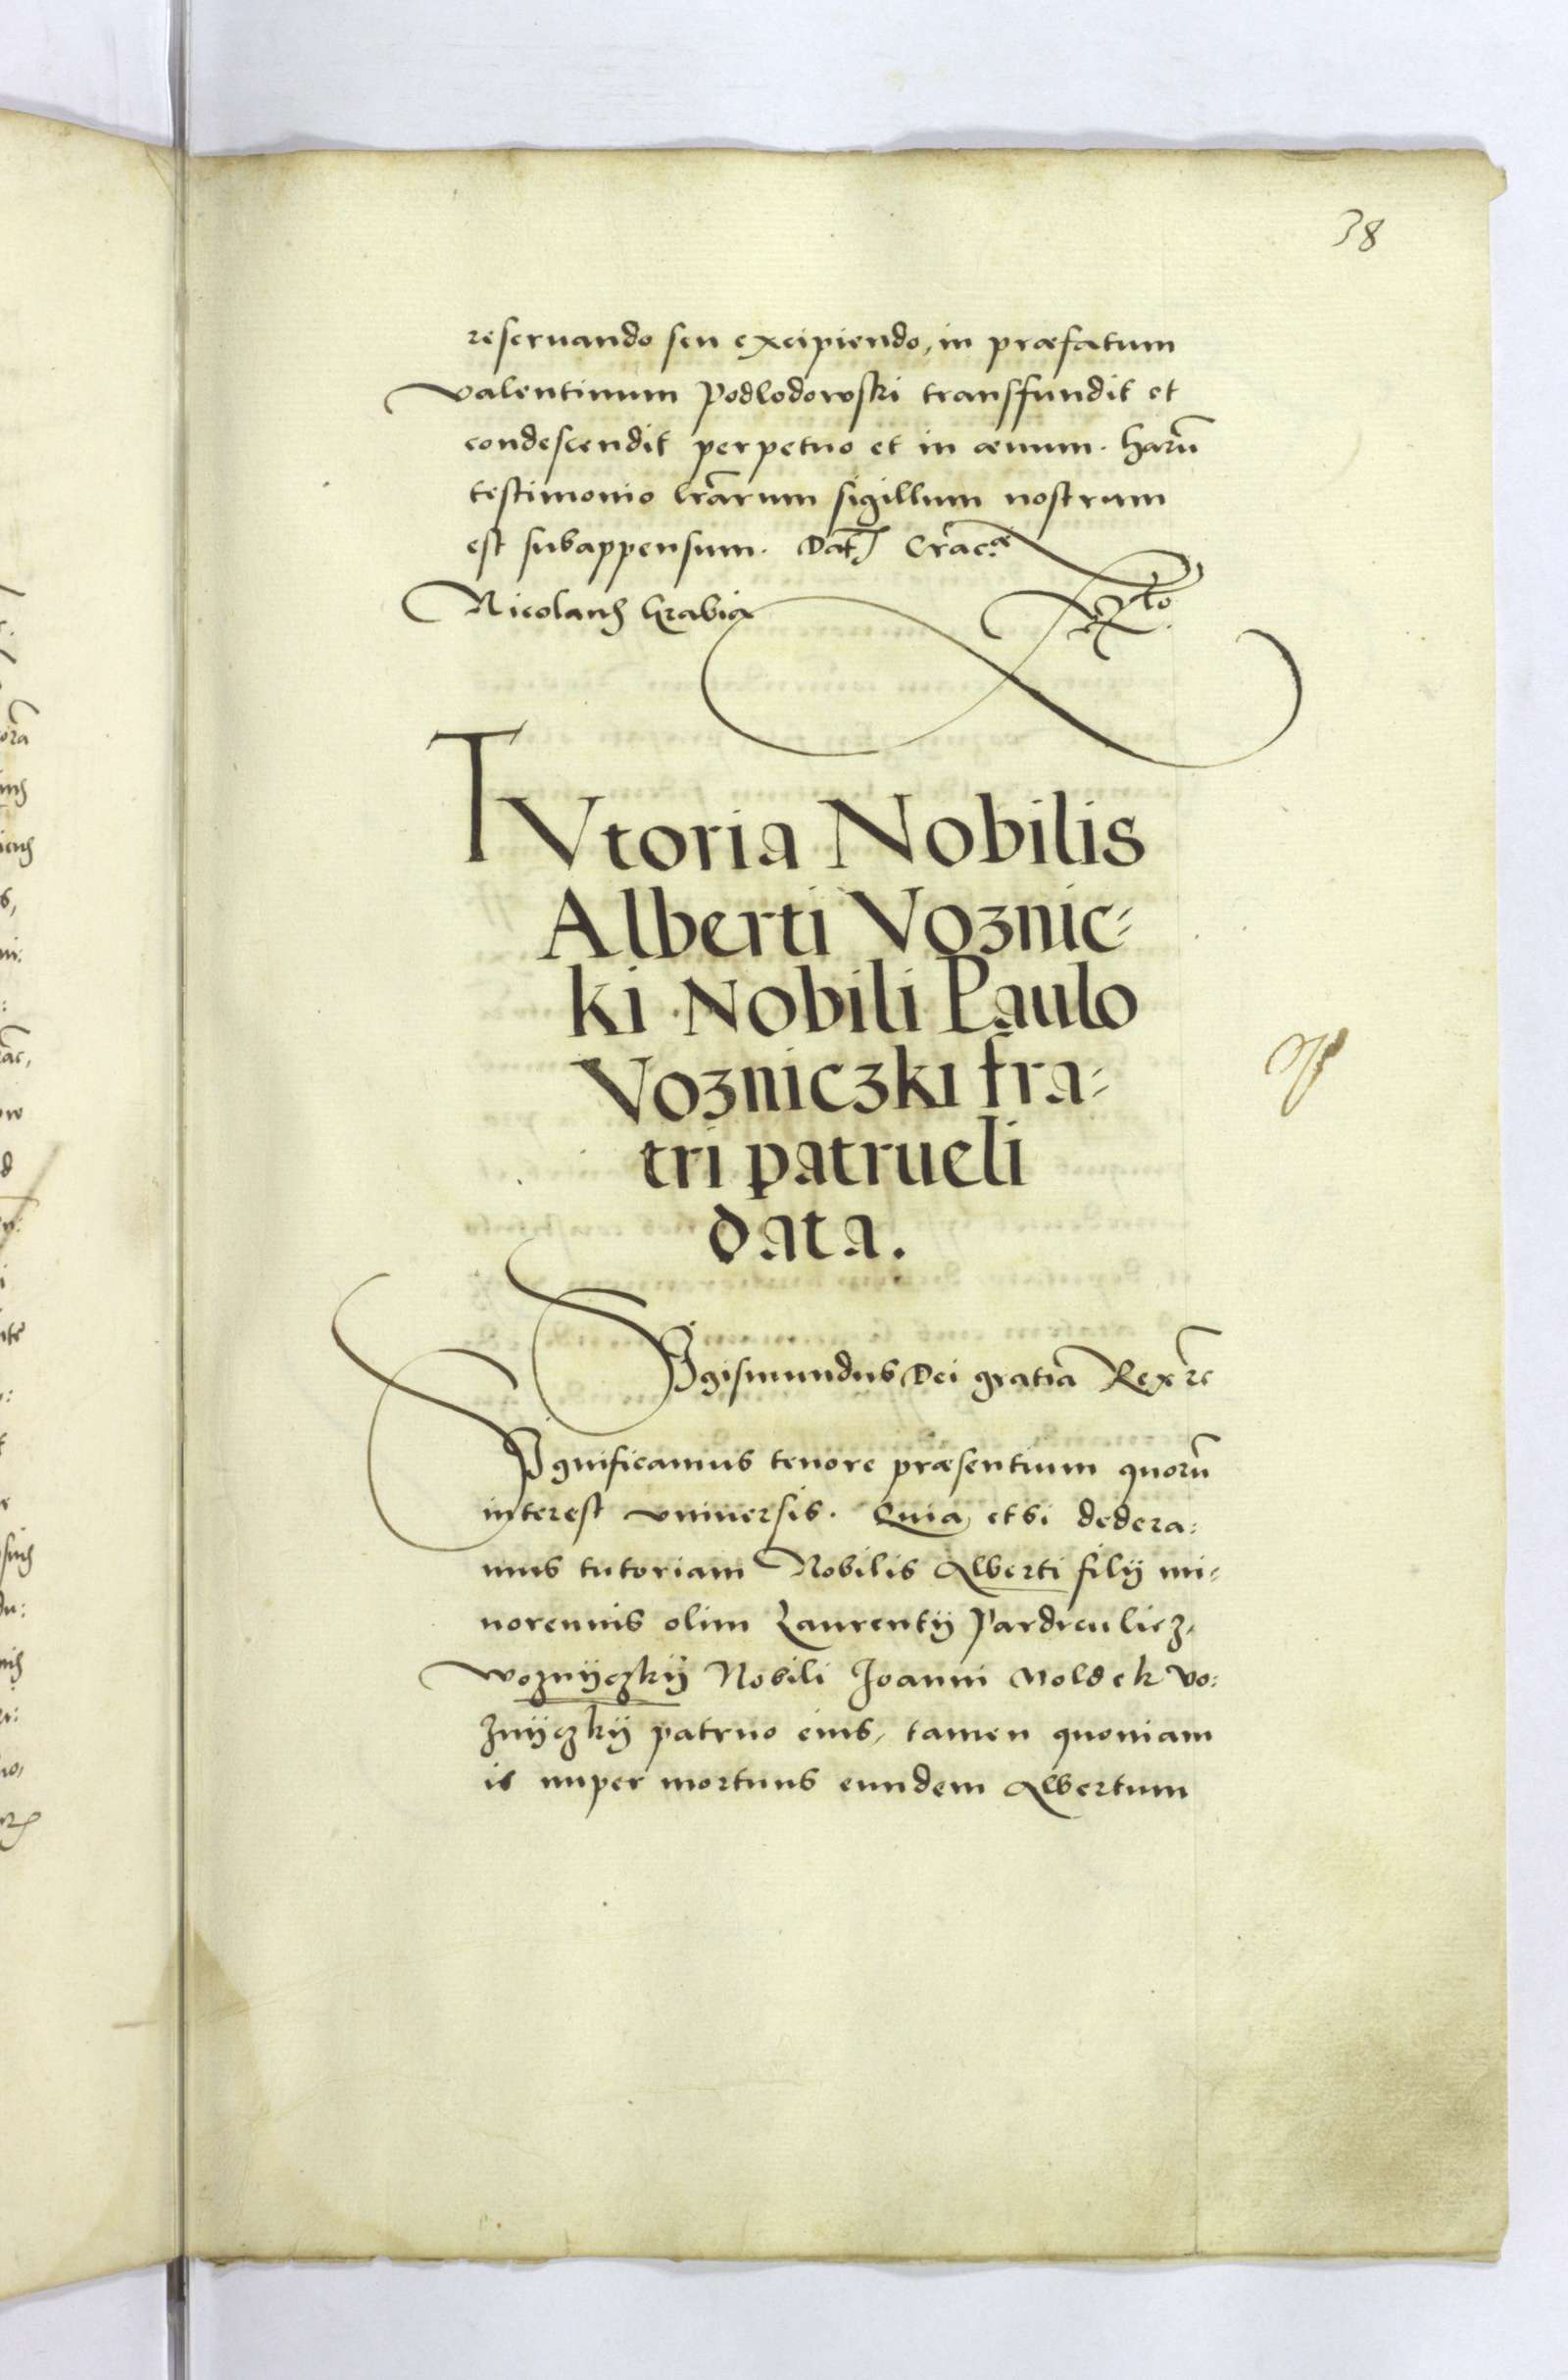 38
reseruando seu excipiendo, in præfatum
Valentinum Podlodowski transfundit et
condescendit perpetuo et in æuum. Harū
testimonio lrārum sigillum nostrum
est subappensum. Dat Cracᵃᵉ
Nicolaus Hrabia sstᵒ
TVtoria Nobilis
Alberti Voznic⸗
ki Nobili Paulo
Vozniczki fra⸗
tri patrueli
data.
Sigismundus Dei gratia Rex ꝛc
Significamus tenore præsentium quorū
interest vniuersis. Quia etsi dedera⸗
mus tutoriam Nobilis Alberti filÿ mi⸗
norennis olim Laurentÿ
Woznÿczkÿ Nobili Joanni Moldek Vo⸗
znÿczkÿ patruo eius, tamen quoniam
is nuper mortuus eundem Albertum